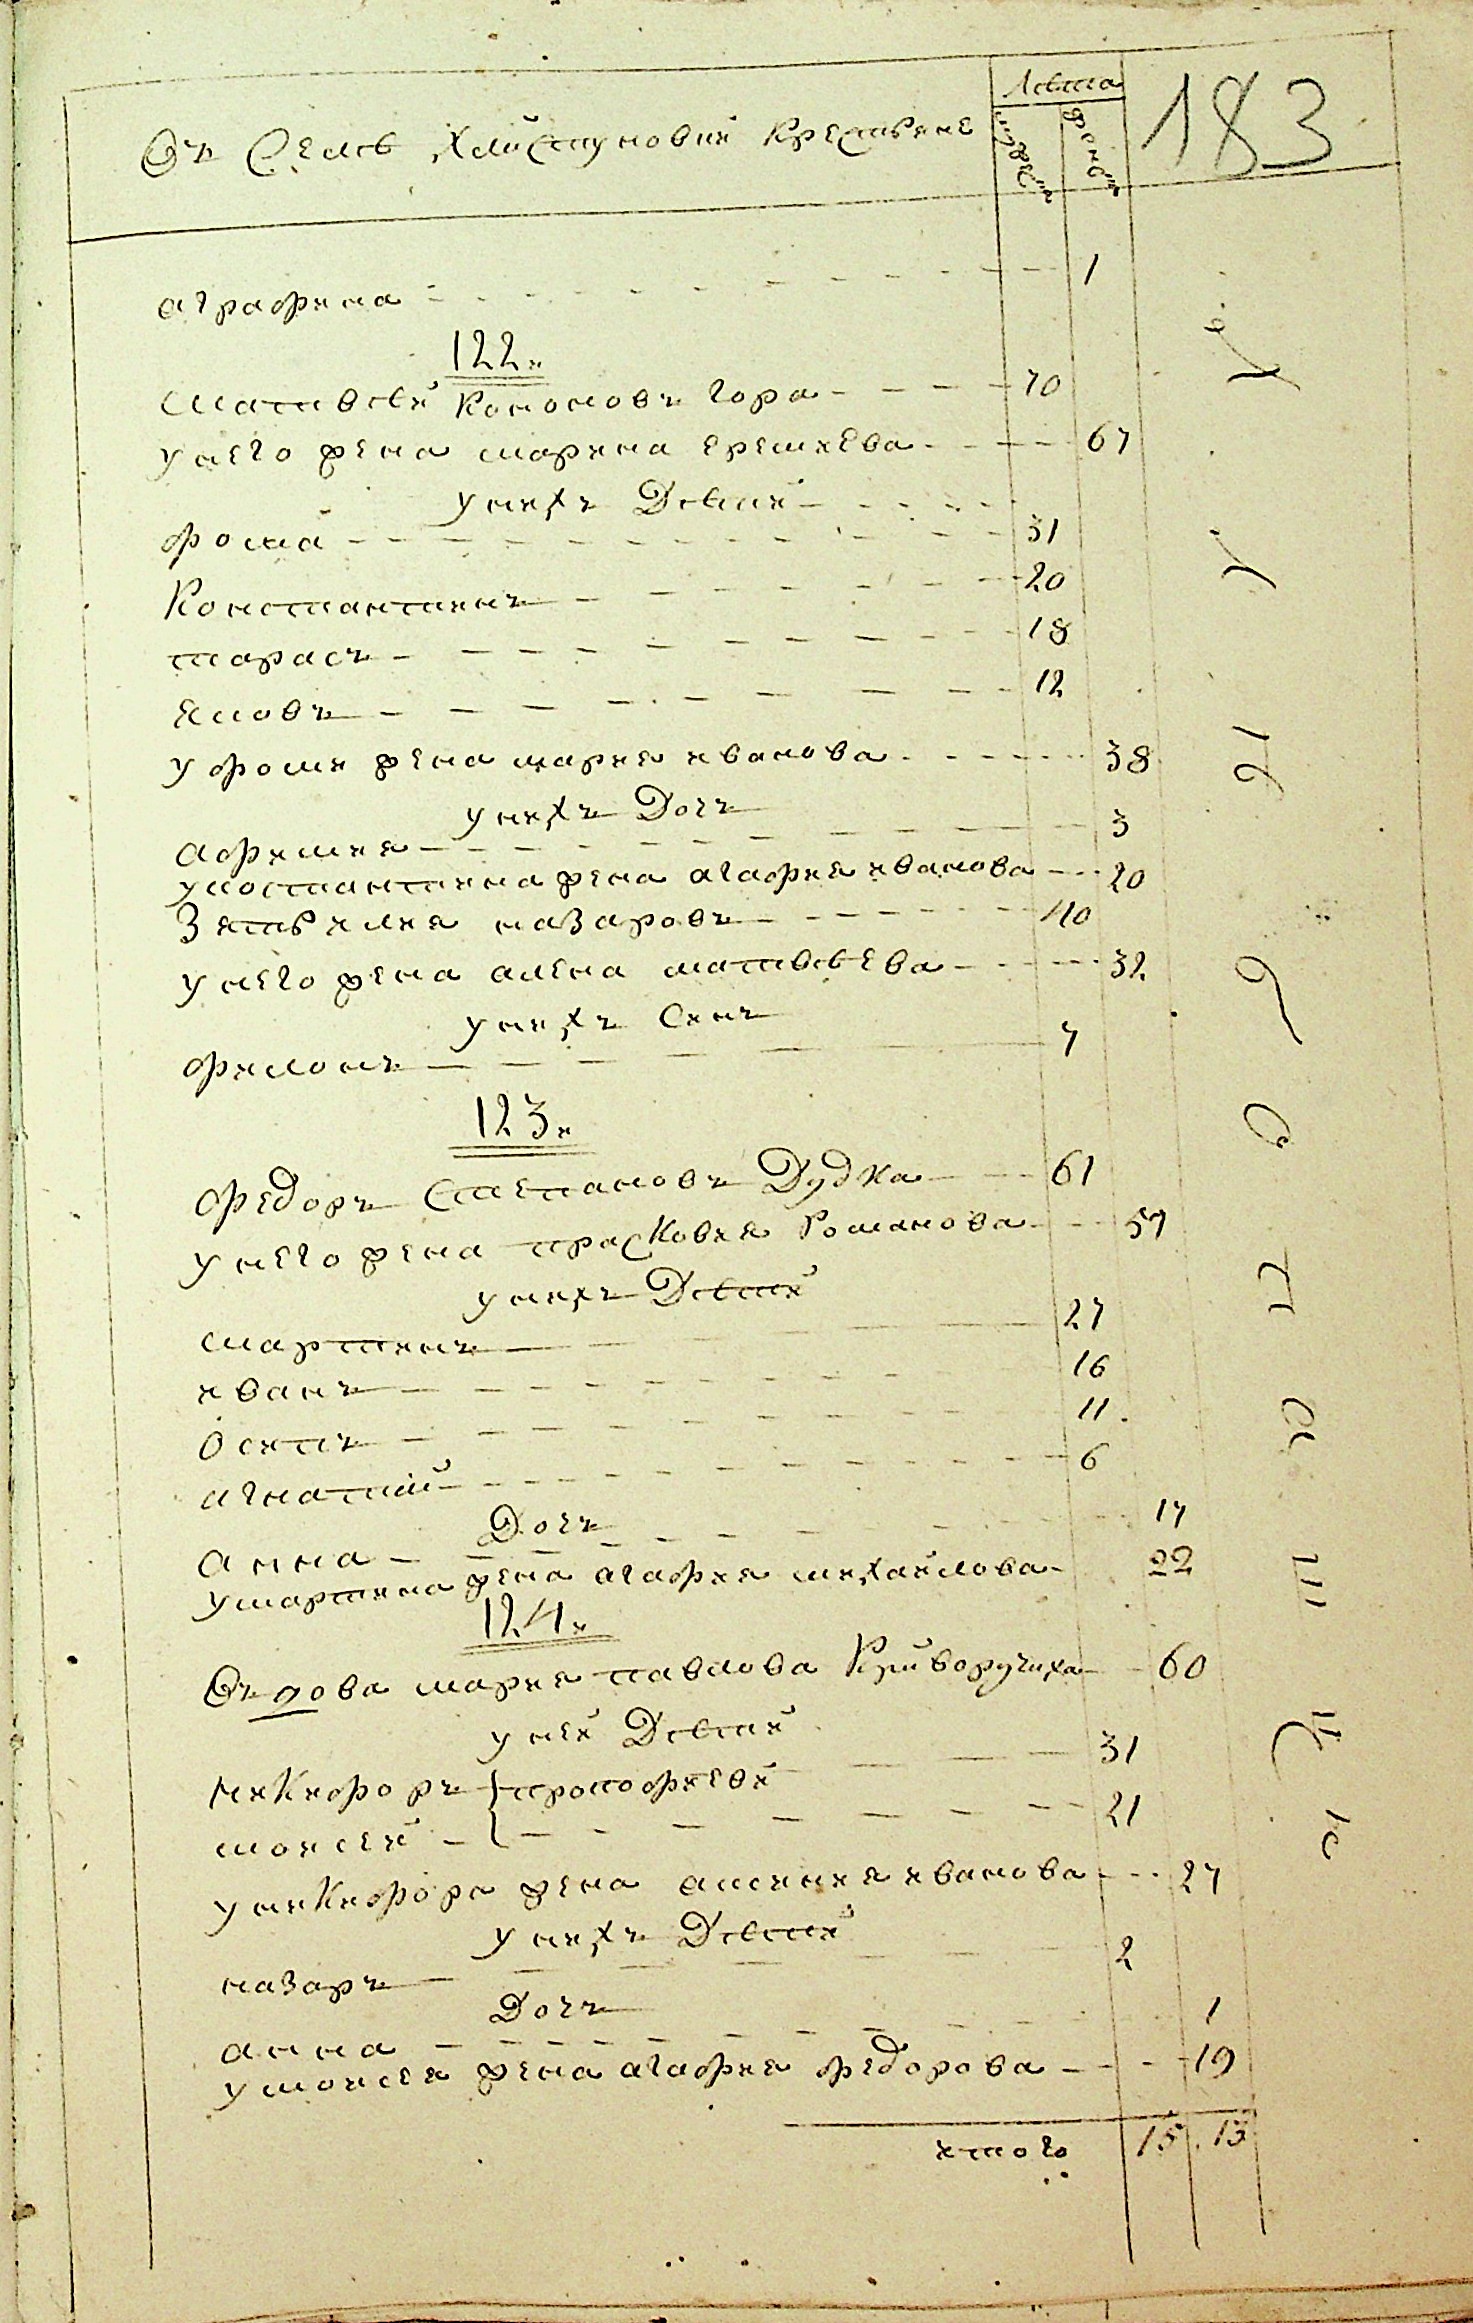 Въ Селѣ Хлистуновки Крестьяне
Лѣта
муж:
жен:
183
аграфина 1
122.
матвѣй Кононовъ Гора 70
у него жена марина еремиева 67
у нихъ Дѣтй
фома 31
Константинъ 20
тарасъ 18
яковъ 12
у фоми жена мария иванова 38
у нихъ Дочъ
афимия 3
у костантина жена агафия иванова 20
Зять илия назаровъ 40
у него жена алена матвѣева 32
у нихъ Синъ
филонъ 7
123.
федоръ Степановъ Дудка 61
у него жена прасковия Романова 57
у нихъ Дѣтй
мартинъ 27
иванъ 16
осипъ 11
игнатий 6
Дочъ
анна 17
у мартина жена агафия михайлова 22
124.
Въдова мария павлова Криворучиха 60
у ней Дѣтй
никифоръ прокофиеви 31
моисей 21
у никифора жена аксиния иванова 27
у нихъ Дѣтй
назаръ 2
Дочъ
анна 1
у моисея жена агафия федорова 19
итого 15 13